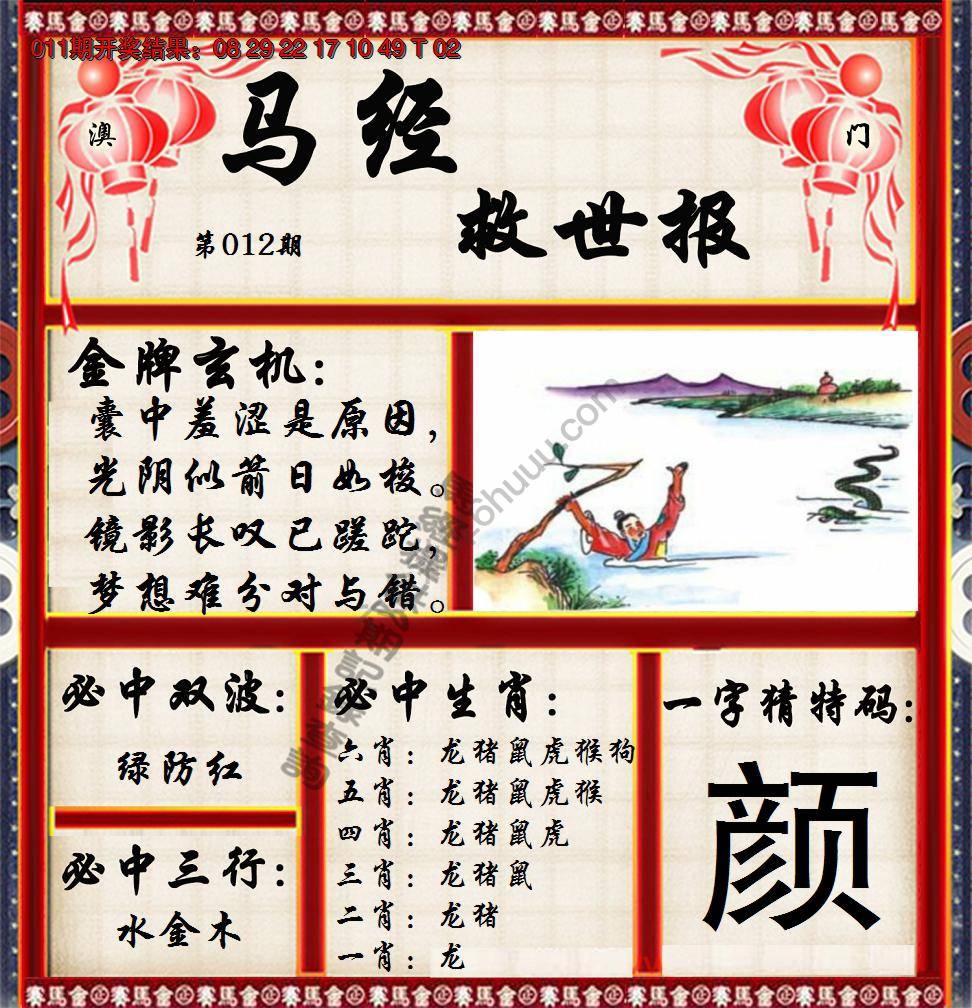 011期开奖结果：08 29 22 17 10 49 T 02
澳
门
马经
救世报
第012期
金牌玄机：
囊中羞涩是原因，
光阴似箭日如梭。
镜影长叹已蹉跎，
梦想难分对与错。
必中双波：
绿防红
必中三行：
水金木
必中生肖：
六肖：龙猪鼠虎猴狗
五肖：龙猪鼠虎猴
四肖：龙猪鼠虎
三肖：龙猪鼠
二肖：龙猪
一肖：龙
一字猜特码：
颜